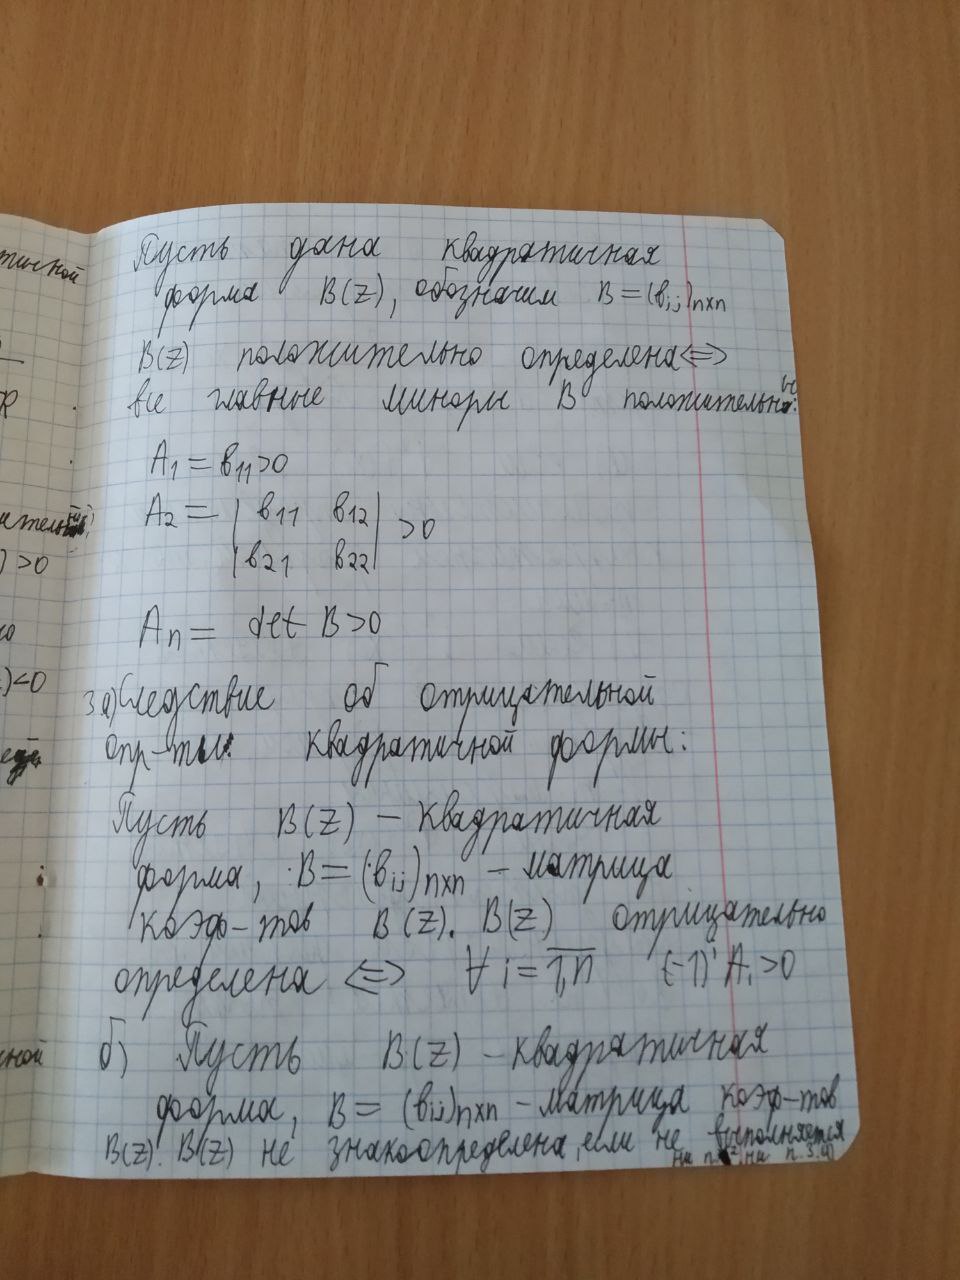 Пусть дана квадратичная
форма B(Z), обозначим B=(bᵢⱼ)n×n
B(Z) положительно определена <=>
все главные миноры B положительны:
A₁ = b₁₁>0
A₂ = | b₁₁ b₁₂ | >0
| b₂₁ b₂₂ |
Aₙ = det B>0
3 а) Следствие об отрицательной
опр-ти квадратичной формы:
Пусть B(Z) – квадратичная
форма, B=(bᵢⱼ)n×n – матрица
коэф-тов B(Z). B(Z) отрицательно
определена <=> ∀ i = 1,n (-1)ⁱ Aᵢ >0
б) Пусть B(Z) – квадратичная
форма, B = (bᵢⱼ)n×n – матрица коэф-тов
B(Z). B(Z) не знакоопределена, если не выполняется
ни п. 2, ни п. 3.а)
тичной
R
ательной
) >0
)<0
ной